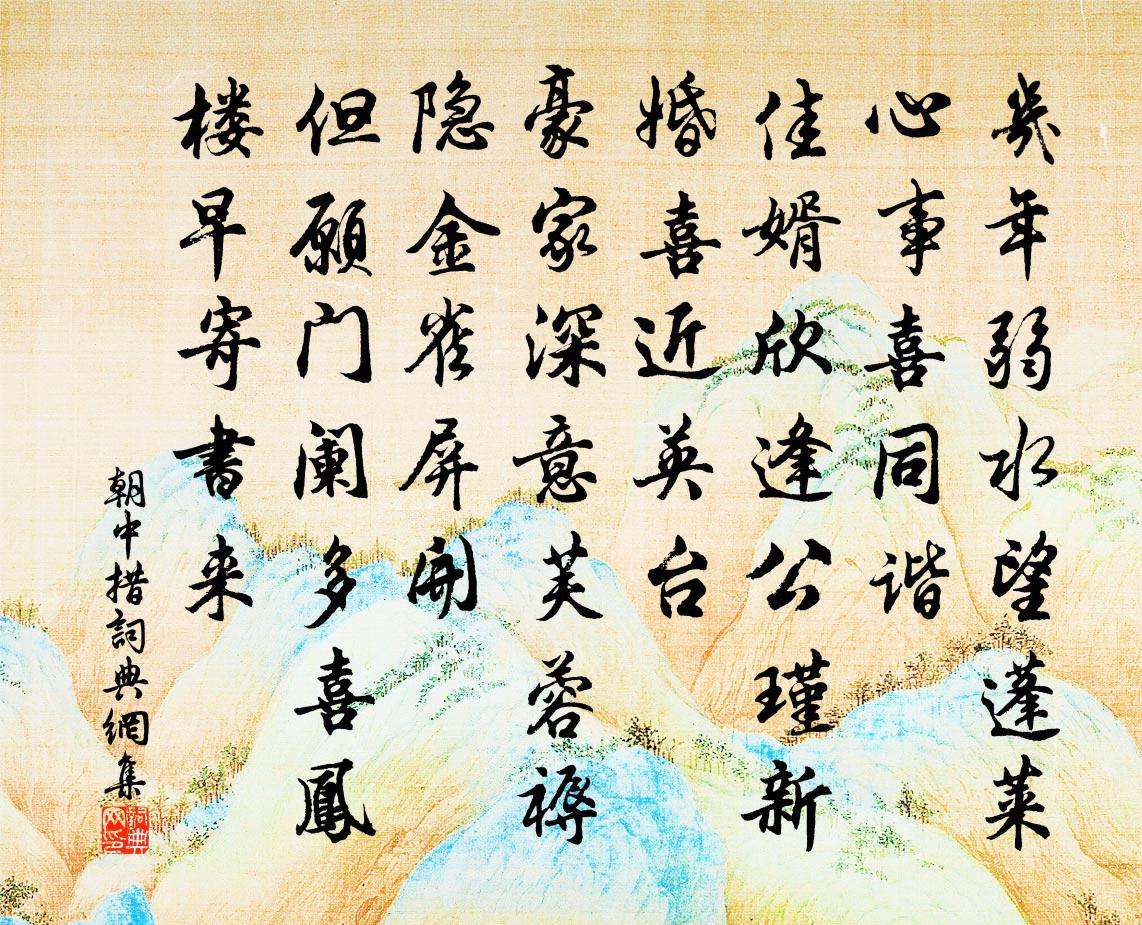 幾年弱水望蓬莱
心事喜同谐
佳婿欣逢公瑾新
婚喜近英台
豪家深意芙蓉褥
隐金雀屏開
但願门阑多喜鳳
楼早寄書来
朝中措詞典網集
詞典